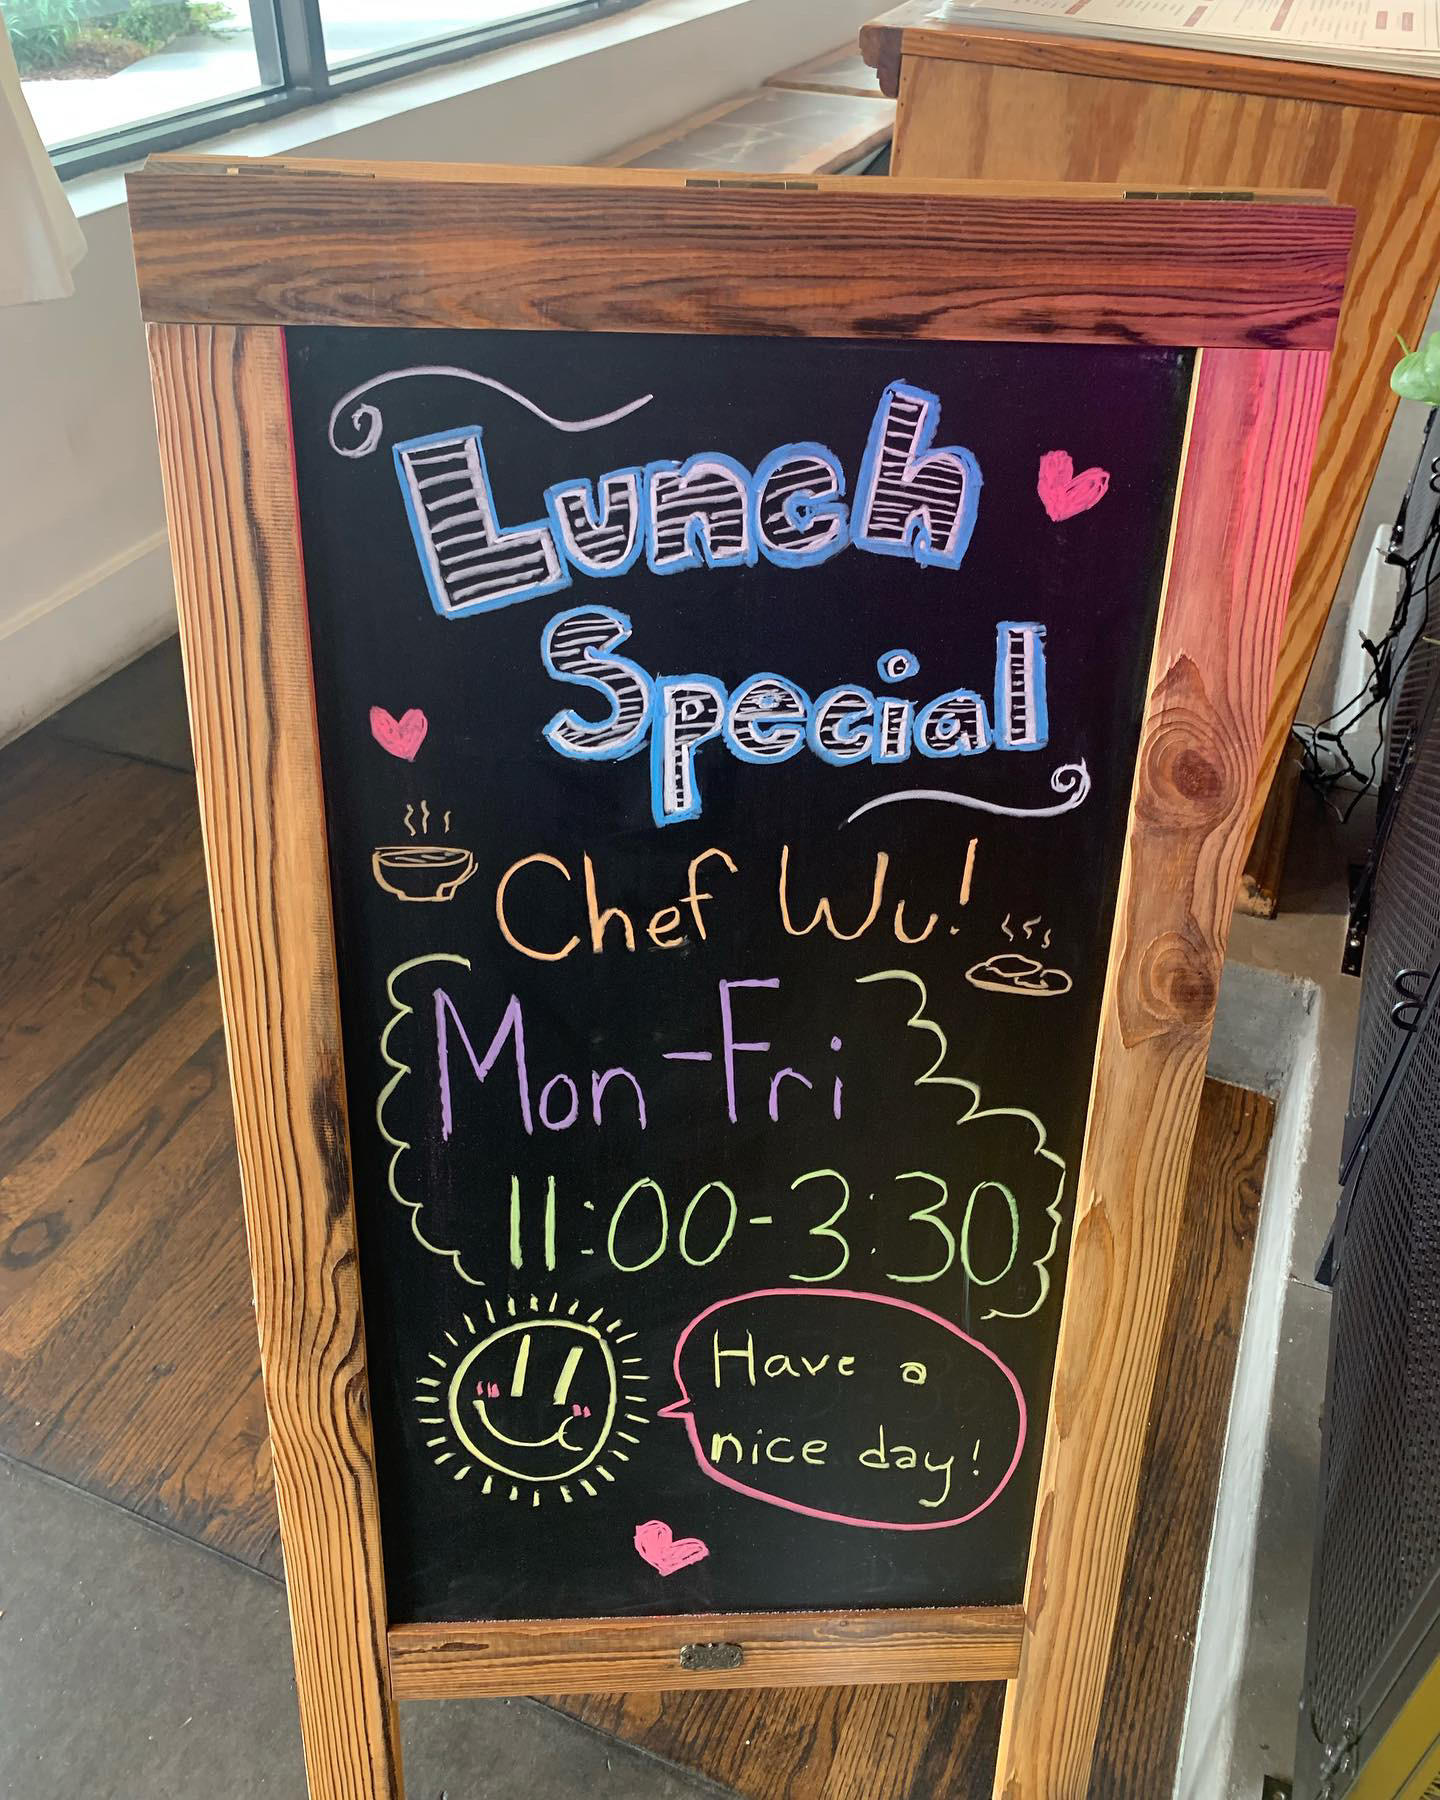 Lunch
Special
Chef Wu!
Mon-Fri
11:00-3:30
Have a
nice day!